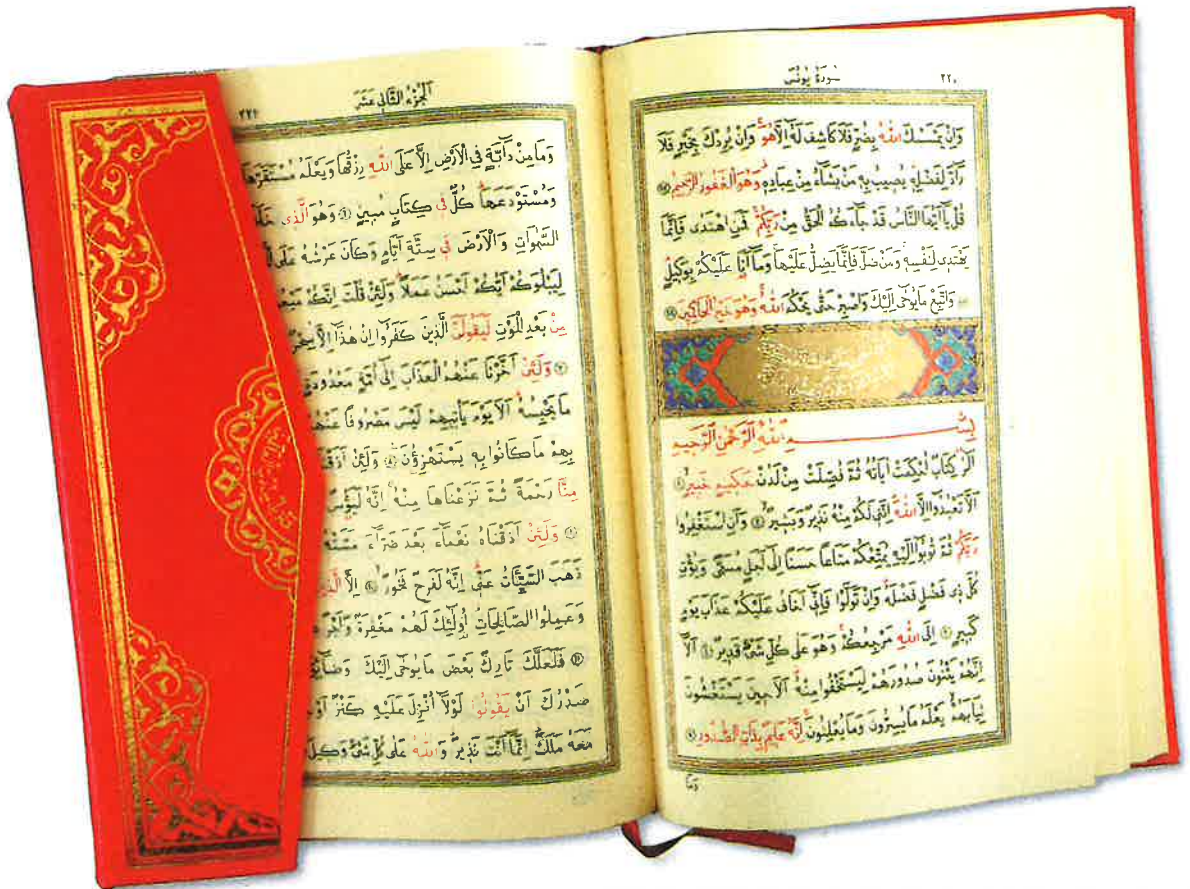 سُورَةُ يُونُسَ ٢٢٠
وَاِنْ يَمْسَسْكَ اللّٰهُ بِضُرٍّ فَلَا كَاشِفَ لَهُٓ اِلَّا هُوَۚ وَاِنْ يُرِدْكَ بِخَيْرٍ فَلَا
رَٓادَّ لِفَضْلِهٖۜ يُصِيبُ بِهٖ مَنْ يَشَٓاءُ مِنْ عِبَادِهٖۜ وَهُوَ الْغَفُورُ الرَّحِيمُ ﴿١٠٧﴾
قُلْ يَٓا اَيُّهَا النَّاسُ قَدْ جَٓاءَكُمُ الْحَقُّ مِنْ رَبِّكُمْۚ فَمَنِ اهْتَدٰى فَاِنَّمَا
يَهْتَدٖى لِنَفْسِهٖۚ وَمَنْ ضَلَّ فَاِنَّمَا يَضِلُّ عَلَيْهَاۚ وَمَٓا اَنَا۬ عَلَيْكُمْ بِوَكِيلٍۜ
وَاتَّبِعْ مَا يُوحٰٓى اِلَيْكَ وَاصْبِرْ حَتّٰى يَحْكُمَ اللّٰهُۚ وَهُوَ خَيْرُ الْحَاكِمِينَ ﴿١٠٩﴾
بِسْمِ اللّٰهِ الرَّحْمٰنِ الرَّحِيمِ
الٓرٰ۠ كِتَابٌ اُحْكِمَتْ اٰيَاتُهُ ثُمَّ فُصِّلَتْ مِنْ لَدُنْ حَكِيمٍ خَبِيرٍۙ ﴿١﴾
اَلَّا تَعْبُدُٓوا اِلَّا اللّٰهَۜ اِنَّنٖى لَكُمْ مِنْهُ نَذِيرٌ وَبَشِيرٌۙ ﴿٢﴾ وَاَنِ اسْتَغْفِرُوا
رَبَّكُمْ ثُمَّ تُوبُٓوا اِلَيْهِ يُمَتِّعْكُمْ مَتَاعًا حَسَنًا اِلٰٓى اَجَلٍ مُسَمًّى وَيُؤْتِ
كُلَّ ذٖى فَضْلٍ فَضْلَهُۜ وَاِنْ تَوَلَّوْا فَاِنّٖٓى اَخَافُ عَلَيْكُمْ عَذَابَ يَوْمٍ
كَبِيرٍ ﴿٣﴾ اِلَى اللّٰهِ مَرْجِعُكُمْۚ وَهُوَ عَلٰى كُلِّ شَىْءٍ قَدِيرٌ ﴿٤﴾ اَلَٓا
اِنَّهُمْ يَثْنُونَ صُدُورَهُمْ لِيَسْتَخْفُوا مِنْهُۜ اَلَا حِينَ يَسْتَغْشُونَ
ثِيَابَهُمْۙ يَعْلَمُ مَا يُسِرُّونَ وَمَا يُعْلِنُونَۚ اِنَّهُ عَلِيمٌ بِذَاتِ الصُّدُورِ ﴿٥﴾
وَمَا
اَلْجُزْءُ الثَّانٖى عَشَرَ ٢٢١
وَمَا مِنْ دَٓابَّةٍ فِي الْاَرْضِ اِلَّا عَلَى اللّٰهِ رِزْقُهَا وَيَعْلَمُ مُسْتَقَرَّهَا
وَمُسْتَوْدَعَهَاۜ كُلٌّ فٖى كِتَابٍ مُبِينٍ ﴿٦﴾ وَهُوَ الَّذٖى خَلَقَ
السَّمٰوَاتِ وَالْاَرْضَ فٖى سِتَّةِ اَيَّامٍ وَكَانَ عَرْشُهُ عَلَى
لِيَبْلُوَكُمْ اَيُّكُمْ اَحْسَنُ عَمَلًاۜ وَلَئِنْ قُلْتَ اِنَّكُمْ
مِنْ بَعْدِ الْمَوْتِ لَيَقُولَنَّ الَّذِينَ كَفَرُٓوا اِنْ هٰذَٓا اِلَّا سِحْرٌ
﴿٧﴾ وَلَئِنْ اَخَّرْنَا عَنْهُمُ الْعَذَابَ اِلٰٓى اُمَّةٍ مَعْدُودَةٍ
مَا يَحْبِسُهُۜ اَلَا يَوْمَ يَأْتِيهِمْ لَيْسَ مَصْرُوفًا عَنْهُمْ
بِهِمْ مَا كَانُوا بِهٖ يَسْتَهْزِؤُنَ ﴿٨﴾ وَلَئِنْ اَذَقْنَا
مِنَّا رَحْمَةً ثُمَّ نَزَعْنَاهَا مِنْهُۚ اِنَّهُ لَيَؤُسٌ
﴿٩﴾ وَلَئِنْ اَذَقْنَاهُ نَعْمَٓاءَ بَعْدَ ضَرَّٓاءَ مَسَّتْهُ
ذَهَبَ السَّيِّـَٔاتُ عَنّٖىۜ اِنَّهُ لَفَرِحٌ فَخُورٌۙ ﴿١٠﴾ اِلَّا الَّذِينَ
وَعَمِلُوا الصَّالِحَاتِۜ اُو۬لٰٓئِكَ لَهُمْ مَغْفِرَةٌ وَاَجْرٌ
﴿١١﴾ فَلَعَلَّكَ تَارِكٌ بَعْضَ مَا يُوحٰٓى اِلَيْكَ وَضَٓائِقٌ
صَدْرُكَ اَنْ يَقُولُوا لَوْلَٓا اُنْزِلَ عَلَيْهِ كَنْزٌ اَوْ
مَعَهُ مَلَكٌۜ اِنَّمَٓا اَنْتَ نَذِيرٌۜ وَاللّٰهُ عَلٰى كُلِّ شَىْءٍ وَكِيلٌ